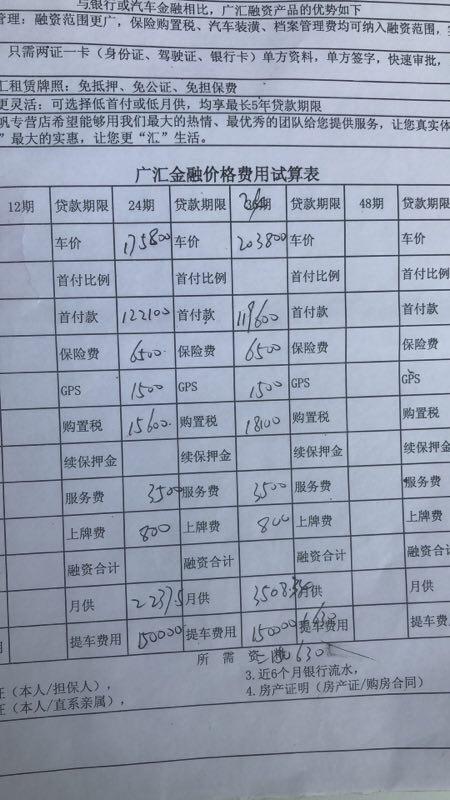 与银行或汽车金融相比，广汇融资产品的优势如下
管理：融资范围更广，保险购置税、汽车装潢、档案管理费均可纳入融资范围，
只需两证一卡（身份证、驾驶证、银行卡）单方资料，单方签字，快速审批，
汇租赁牌照：免抵押、免公证、免担保费
更灵活：可选择低首付或低月供，均享最长5年贷款期限
帆专营店希望能够用我们最大的热情、最优秀的团队给您提供服务，让您真实体
”最大的实惠，让您更“汇”生活。
广汇金融价格费用试算表
12期 贷款期限 24期 贷款期限 期 贷款期限 48期 贷款期限
车价 175800 车价 203800 车价 车价
首付比例 首付比例 首付比例 首付比例
首付款 122100 首付款 119600 首付款 首付款
保险费 6500 保险费 6500 保险费 保险费
GPS 1500 GPS 1500 GPS GPS
购置税 15600 购置税 18100 购置税 购置税
续保押金 续保押金 续保押金 续保押金
服务费 3500 服务费 3500 服务费 服务费
上牌费 800 上牌费 800 上牌费 上牌费
融资合计 融资合计 融资合计 融资合计
月供 2237.5 月供 月供 月供
用 提车费用 150000 提车费用 150000 提车费用 提车费用
所需资
证（本人/担保人）， 3.近6个月银行流水，
证（本人/直系亲属）， 4.房产证明（房产证/购房合同）